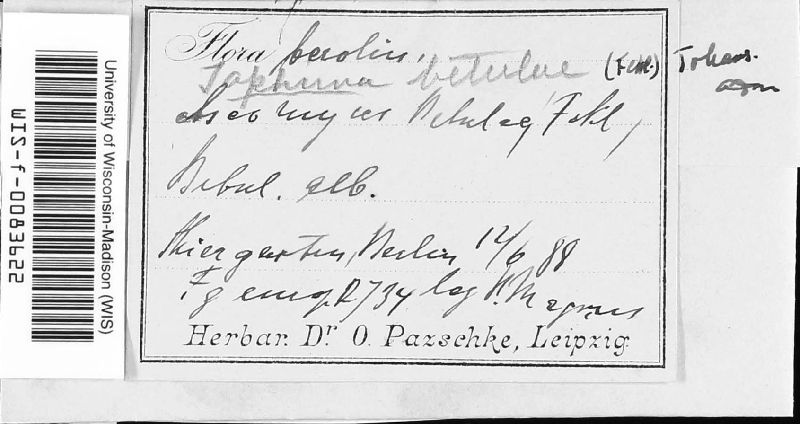 Flora berolin.
Taphrina betulae (Fckl.) Johans.
Ascomyces Betulae, Fckl,
Betul. alb.
Thiergarten, Berlin 12/6 88
leg P. Magnus
Herbar. Dr O. Pazschke, Leipzig.
University of Wisconsin-Madison (WIS)
WIS-f-0083622